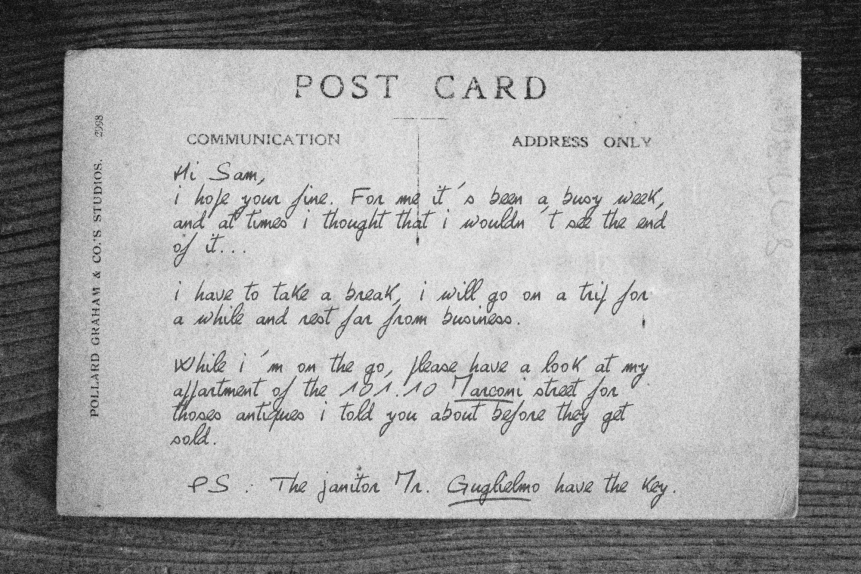 POST CARD
COMMUNICATION
ADDRESS ONLY
POLLARD GRAHAM & CO.'S STUDIOS.
Hi Sam,
i hope your fine. For me it´s been a busy week,
and at times i thought that i wouldn´t see the end
of it...
i have to take a break, i will go on a trip for
a while and rest far from business.
While i´m on the go, please have a look at my
appartment of the 101.10 Marconi street for
thoses antiques i told you about before they get
sold.
PS : The janitor Mr. Guglielmo have the key.